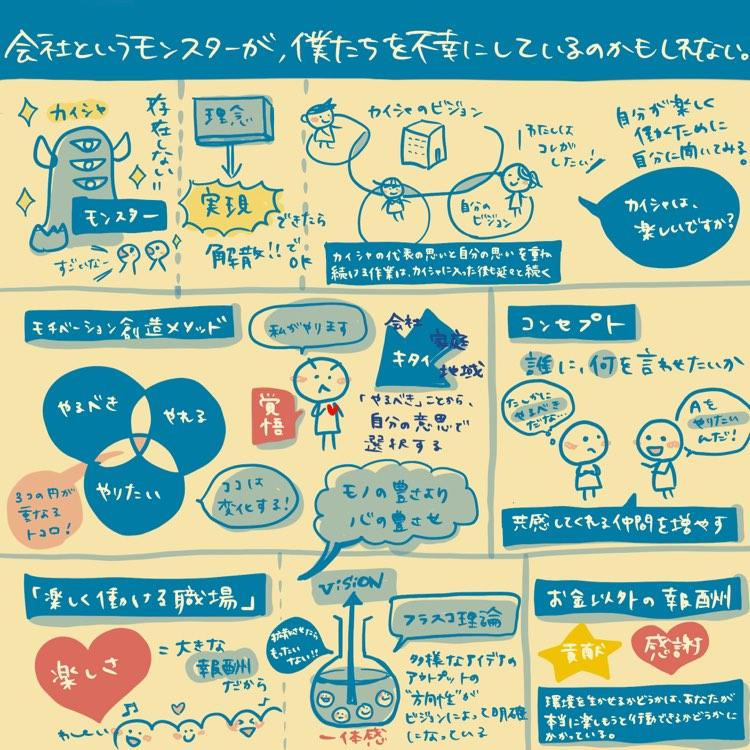 会社というモンスターが,僕たちを不幸にしているのかもしれない。
カイシャ
存在しない!!
モンスター
すごいなー
理念
実現
できたら
解散!!で
OK
カイシャのビジョン
わたしは
コレが
したい!
自分の
ビジョン
カイシャの代表の思いと自分の思いを重ね
続ける作業は、カイシャに入った後も延々と続く
自分が楽しく
働くために
自分に聞いてみる。
カイシャは、
楽しいですか?
モチベーション創造メソッド
やるべき
やれる
やりたい
3つの円が
重なる
トコロ!
ココは
変化する!
私がやります
覚悟
会社
家庭
地域
キタイ
「やるべき」ことから、
自分の意思で
選択する
モノの豊さより
心の豊させ
コンセプト
誰に,何を言わせたいか
たしかに
やるべき
だな…
Aを
やりたい
んだ!
共感してくれる仲間を増やす
「楽しく働ける職場」
楽しさ
=大きな
報酬
だから
わーい
VISION
拡散させたら
もったい
ない!!
フラスコ理論
多様なアイデアの
アウトプットの
"方向性"が
ビジョンによって明確
になっている
一体感
お金以外の報酬
貢献
感謝
環境を生かせるかどうかは、あなたが
本当に楽しもうと行動できるかどうかに
かかっている。